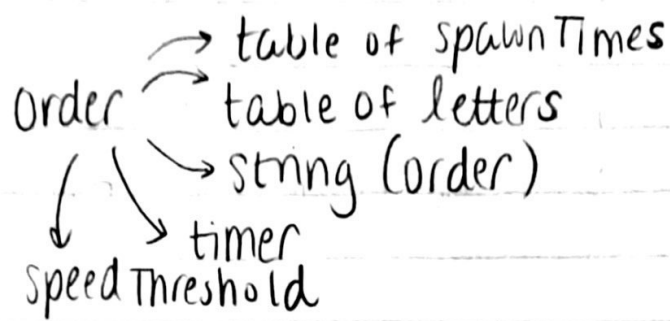 table of spawnTimes
order
table of letters
string (order)
timer
speedThreshold